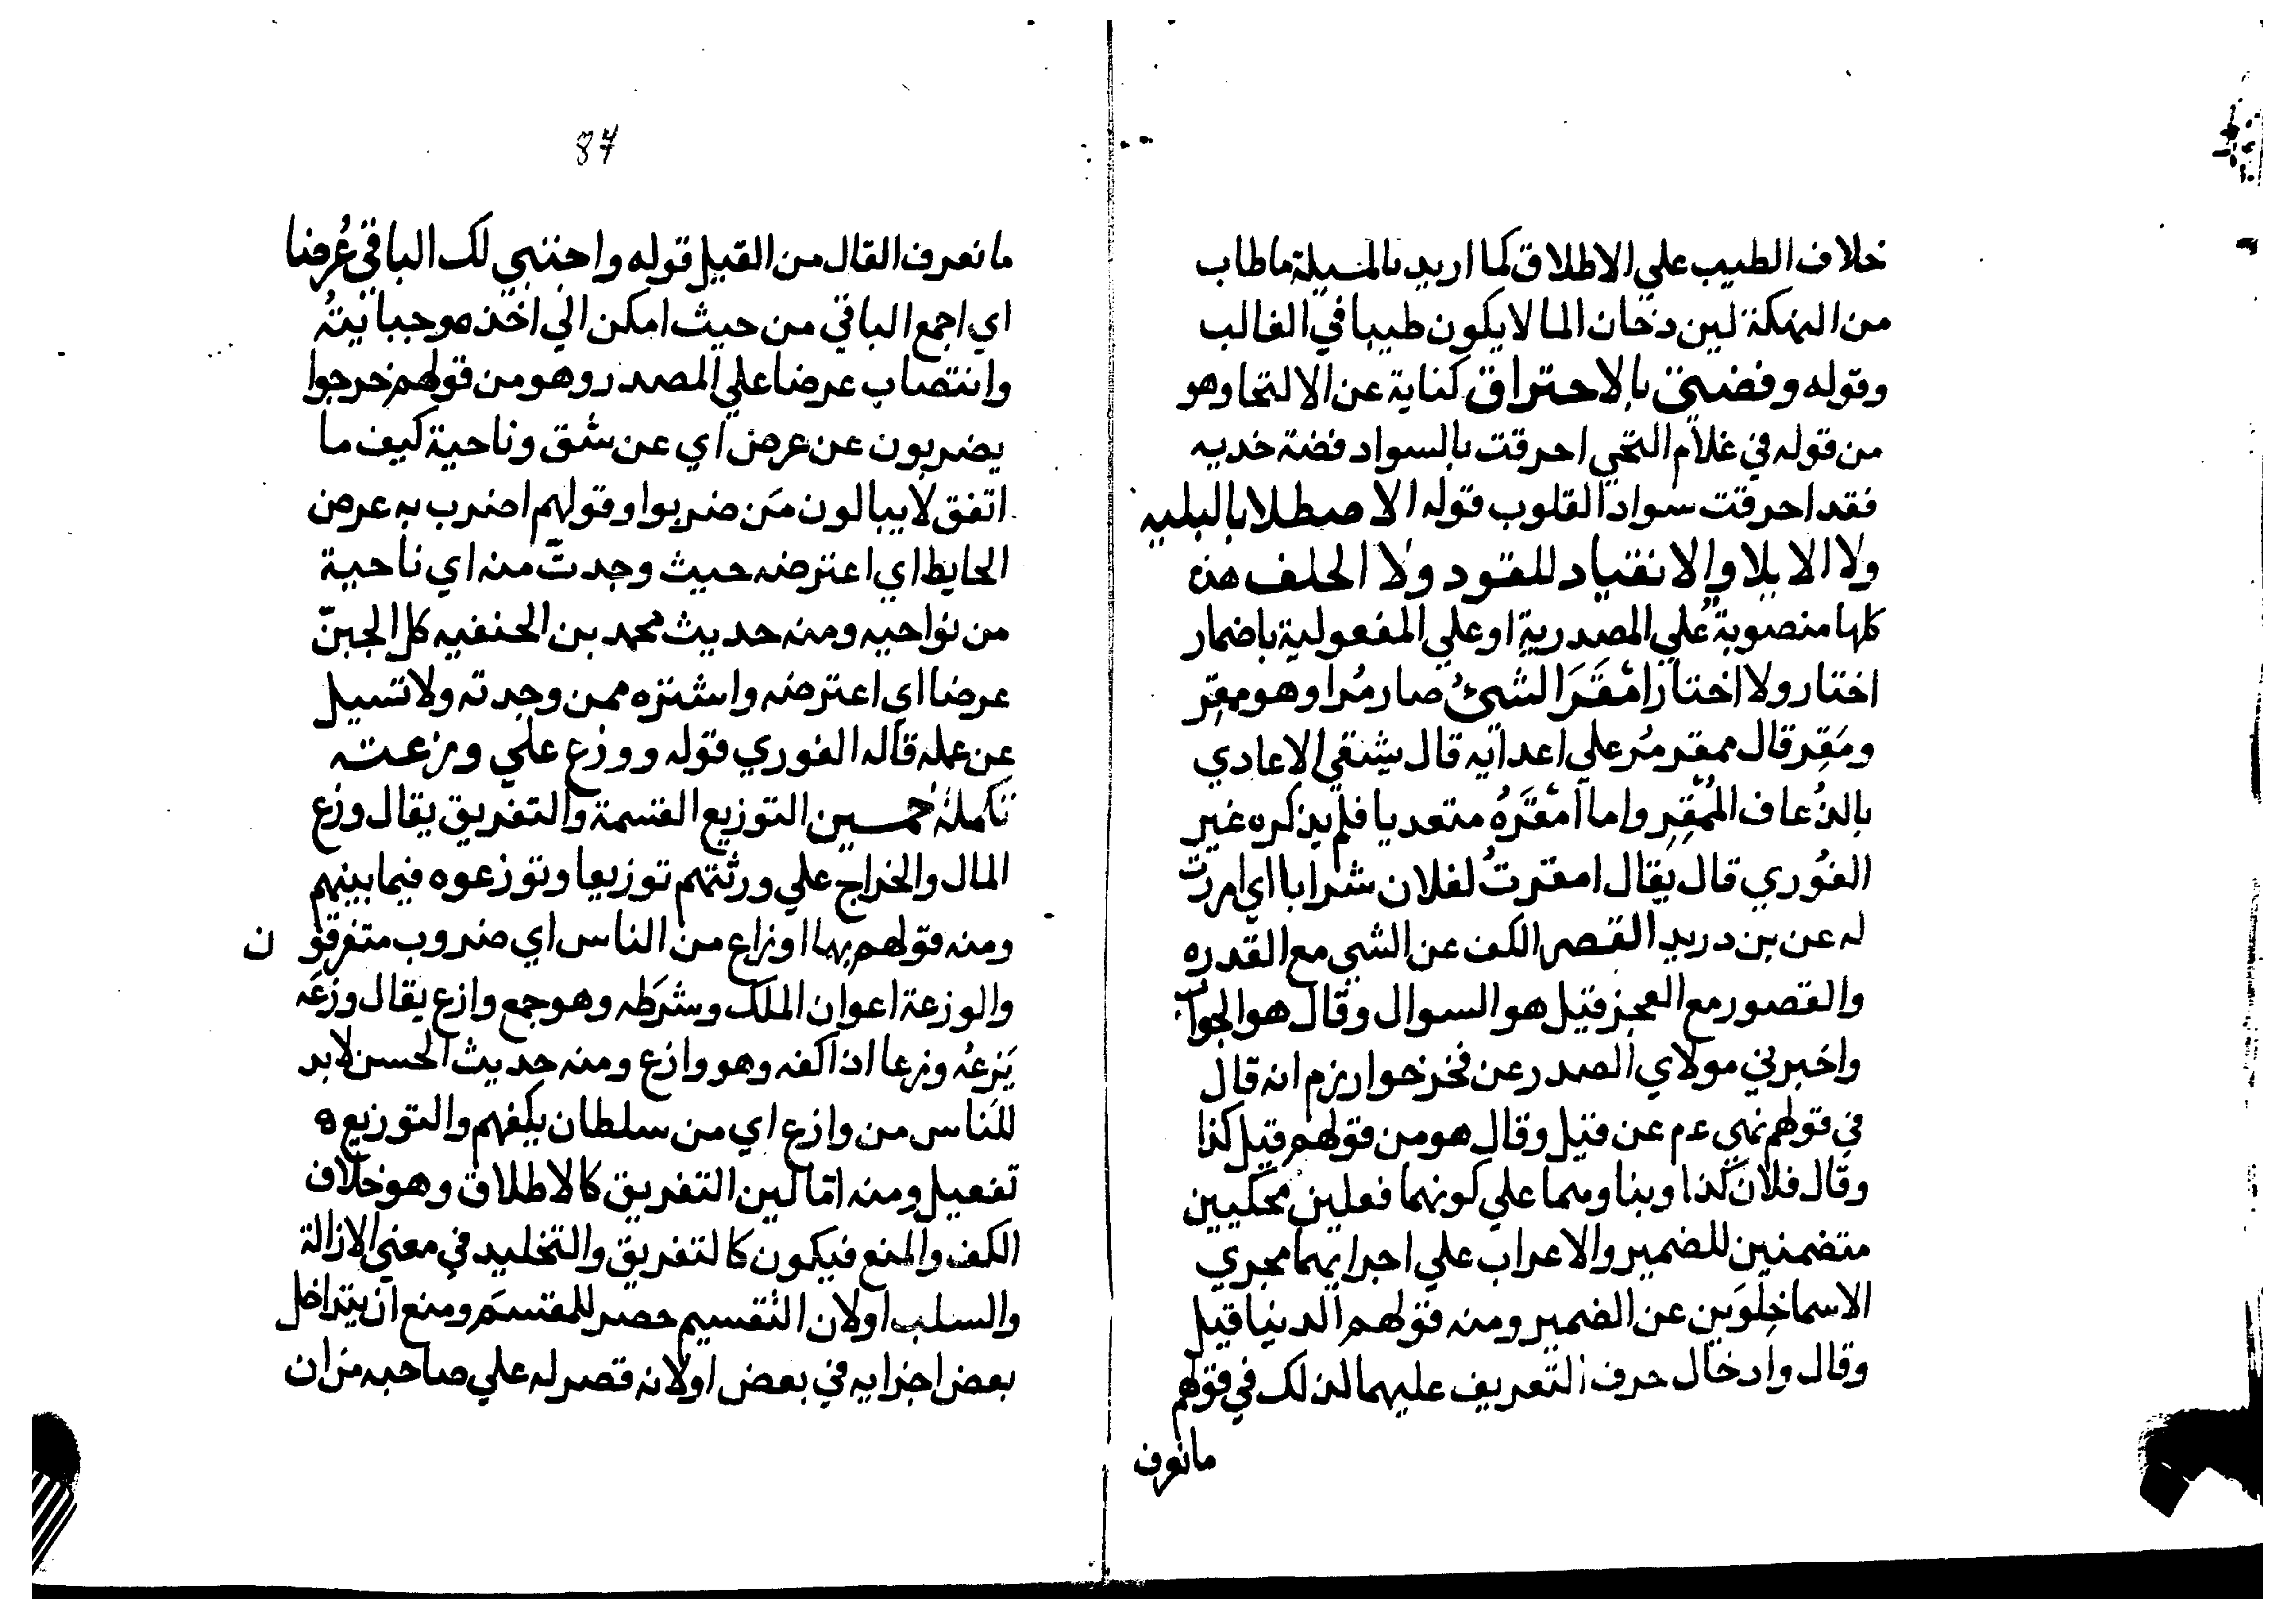 خلاف الطيب علي الاطلاق كما اريد بالمسيلة ما طاب
من النهكة لين دخان الما لا يكون طيبا في الغالب
وقوله وفضتي بالاحتراق كناية عن الالتحا وهو
من قوله في غلام التحي احرقت بالسواد فضة خديه
فقد احرقت سواد القلوب قوله الاصطلا بالبليه
ولا الابلا والانقياد للقود ولا الحلف هذه
كلها منصوبة علي المصدرية او علي المفعولية باضمار
اختار ولا اختار امْقَرَ الشئُ صار مُرا وهو ممقِر
ومَقِر قال ممقر مُر علي اعدائه قال يشقي الاعادي
بالذُعاف المُمْقِرِ واما امْقَرَهُ متعديا فلم يذكره غير
الغُوري قال يقال امقرتُ لفلان شرابا اي امررت
له عن بن دريد القصر الكف عن الشي مع القدره
والقصور مع العجز فقيل هو السوال وقال هو الجواب
واخبرني مولاي الصدر عن فخر خوارزم انه قال
في قولهم نهي عم عن قيل وقال هو من قولهم قيل كذا
وقال فلان كذا وبناوهما علي كونهما فعلين محكيين
متضمنين للضمير والاعراب علي اجرايهما مجري
الاسما خِلوَين عن الضمير ومنه قولهم الدنيا قيل
وقال وادخال حرف التعريف عليهما لذلك في قولهم
مانعرف
87
ما نعرف القال من القيل قوله واجنني لك الباقي عُرضا
اي اجمع الباقي من حيث امكن الي اخذه موجباتيتُه
وانتصاب عرضا علي المصدر وهو من قولهم خرجوا
يضربون عن عرض اي عن شق وناحية كيف ما
اتفق لا يبالون مَن ضربوا وقولهم اضرب به عرض
الحايط اي اعترضه حيث وجدتَ منه اي ناحية
من نواحيه ومنه حديث محمد بن الحنفيه كل الجبنّ
عرضا اي اعترضه واشتره ممن وجدته ولا تسيل
عن عمله قاله الغوري قوله ووزع علي وزعته
تكملة خمسين التوزيع القسمة والتفريق يقال وزع
المال والخراج علي ورثتهم توزيعا وتوزعوه فيما بينهم
ومنه قولهم بها اوزاع من الناس اي ضروب متفرقون
والوزعة اعوان الملك وشرَطه وهو جمع وازع يقال وزعَه
يَزعُه وزعا اذا كفه وهو وازع ومنه حديث الحسن لابد
للناس من وازع اي من سلطان يكفهم والتوزيع ه
تفعيل ومنه امّا لين التفريق كالاطلاق وهو خلاف
الكف والمنع فيكون كالتفريق والتخليد في معني الازالة
والسلب او لان التقسيم حصر للمقتسَم ومنع ان يتداخل
بعض اجزايه في بعض او لانه قصر له علي صاحبه من ان